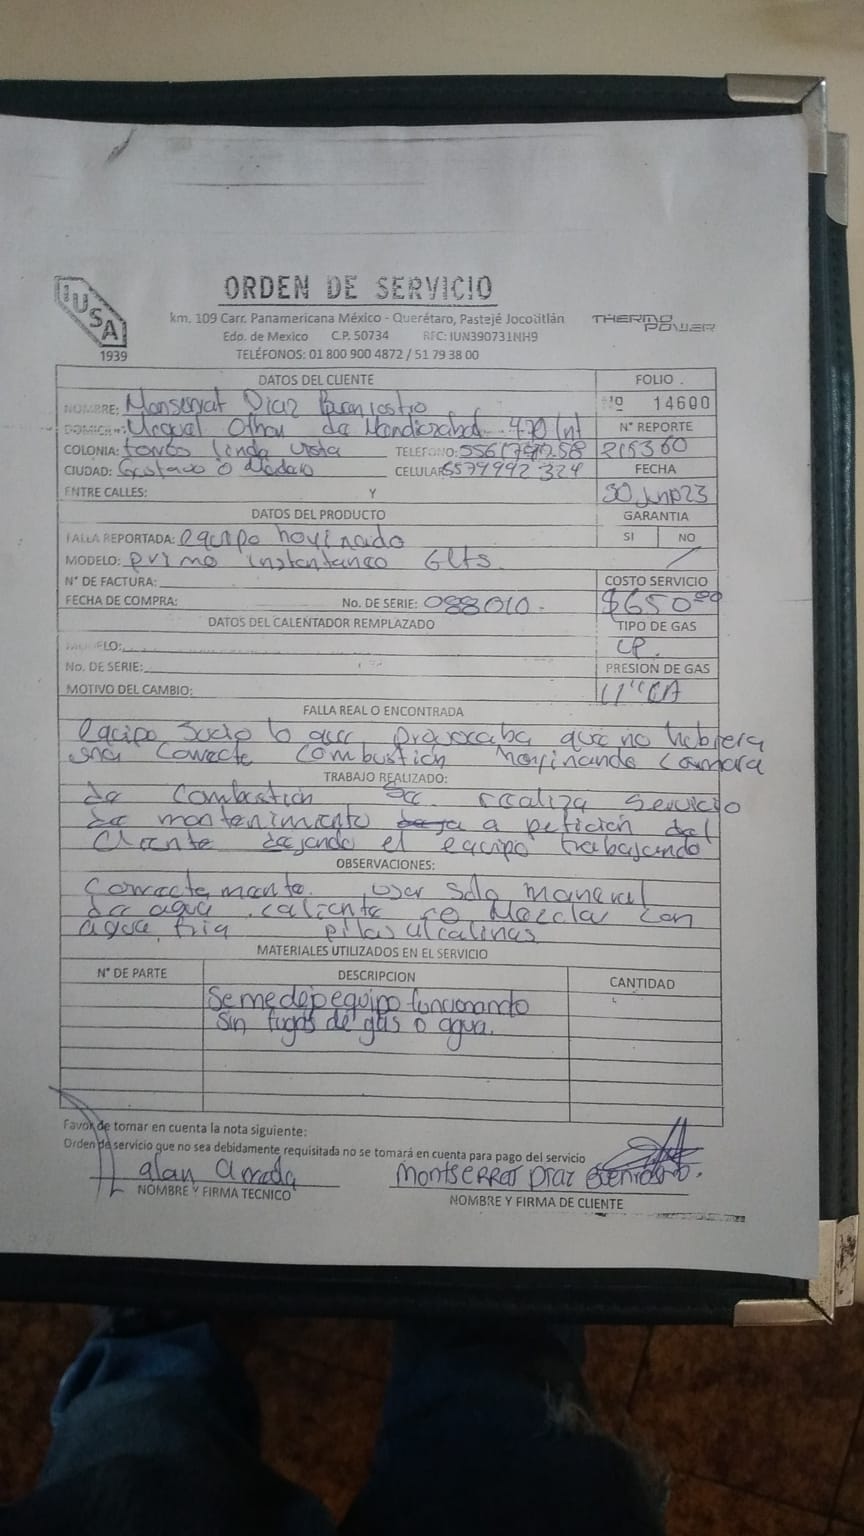 IUSA
1939
ORDEN DE SERVICIO
km. 109 Carr. Panamericana México - Querétaro, Pastejé Jocotitlán
Edo. de Mexico C.P. 50734 RFC: IUN390731NH9
TELÉFONOS: 01 800 900 4872 / 51 79 38 00
THERMO POWER
DATOS DEL CLIENTE
FOLIO .
NOMBRE: Monserrat Diaz
Nº 14600
N° REPORTE
COLONIA: torres linda vista TELEFONO:
215360
CIUDAD: Gustavo a Madero CELULAR: 5579992324
FECHA
ENTRE CALLES: Y
30 Jun 23
DATOS DEL PRODUCTO
GARANTIA
FALLA REPORTADA: equipo hollinado
SI NO
MODELO: primo instantaneo 6Lts.
N° DE FACTURA:
COSTO SERVICIO
FECHA DE COMPRA: No. DE SERIE: 088010.
$650.00
DATOS DEL CALENTADOR REMPLAZADO
TIPO DE GAS
MODELO:
LP.
No. DE SERIE:
PRESION DE GAS
MOTIVO DEL CAMBIO:
11"CA
FALLA REAL O ENCONTRADA
equipo sucio lo que provocaba que no hubiera
una correcta combustión hollinando camara
TRABAJO REALIZADO:
de combustión se realiza servicio
de mantenimiento a petición del
cliente dejando el equipo trabajando
OBSERVACIONES:
correctamente. usar solo maneral
de agua caliente no Mezclar con
agua fria pilas alcalinas
MATERIALES UTILIZADOS EN EL SERVICIO
N° DE PARTE DESCRIPCION CANTIDAD
Se me dejo equipo funcionando
Sin fugas de gas o agua.
Favor de tomar en cuenta la nota siguiente:
Orden de servicio que no sea debidamente requisitada no se tomará en cuenta para pago del servicio
alan
montserrat Diaz
NOMBRE Y FIRMA TECNICO
NOMBRE Y FIRMA DE CLIENTE